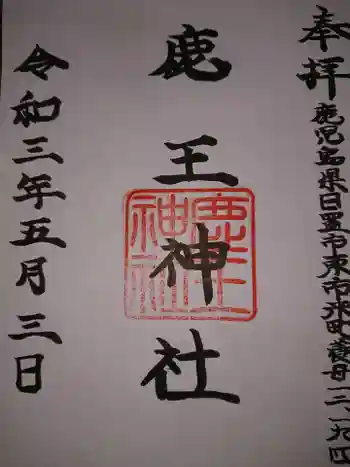 奉拝
鹿児島県日置市東市来町養母一二一九四
鹿王神社
鹿王神社
令和三年五月三日